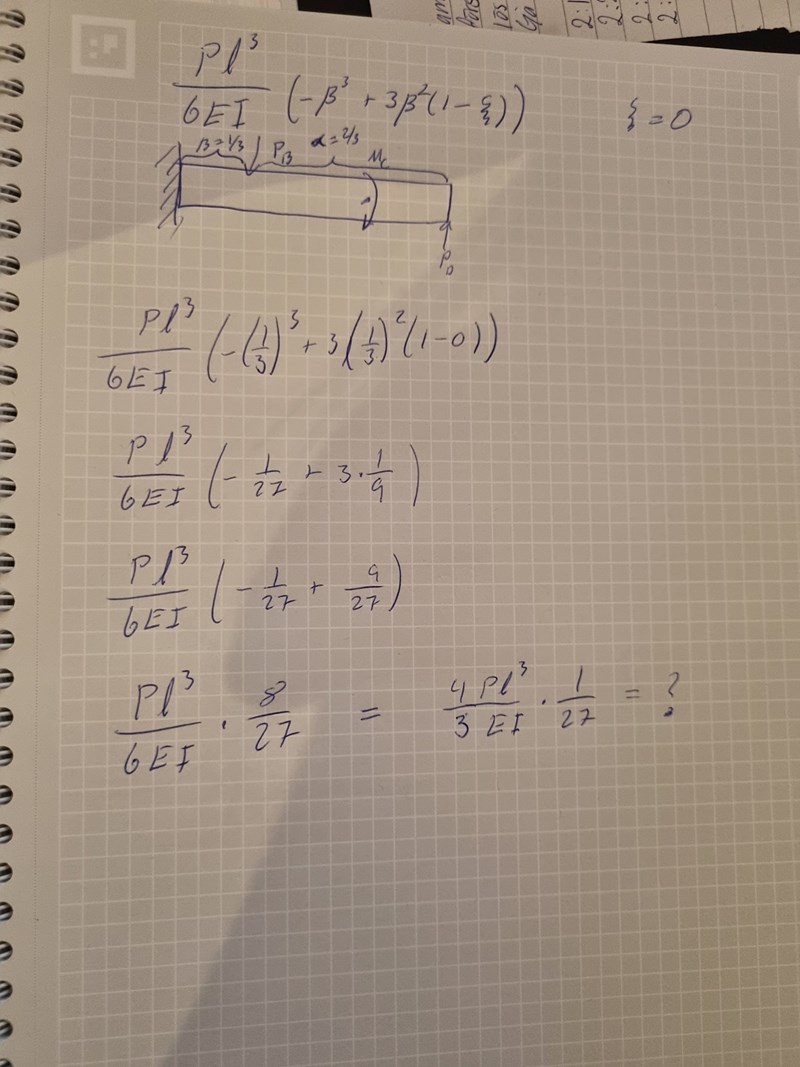 Pl³/6EI (-β³ + 3β²(1-ξ)) ξ = 0
β = 1/3 P_B α = 2/3 M_C
P_D
Pl³/6EI (-(1/3)³ + 3(1/3)²(1-0))
Pl³/6EI (-1/27 + 3·1/9)
Pl³/6EI (-1/27 + 9/27)
Pl³/6EI · 8/27 = 4Pl³/3EI · 1/27 = ?